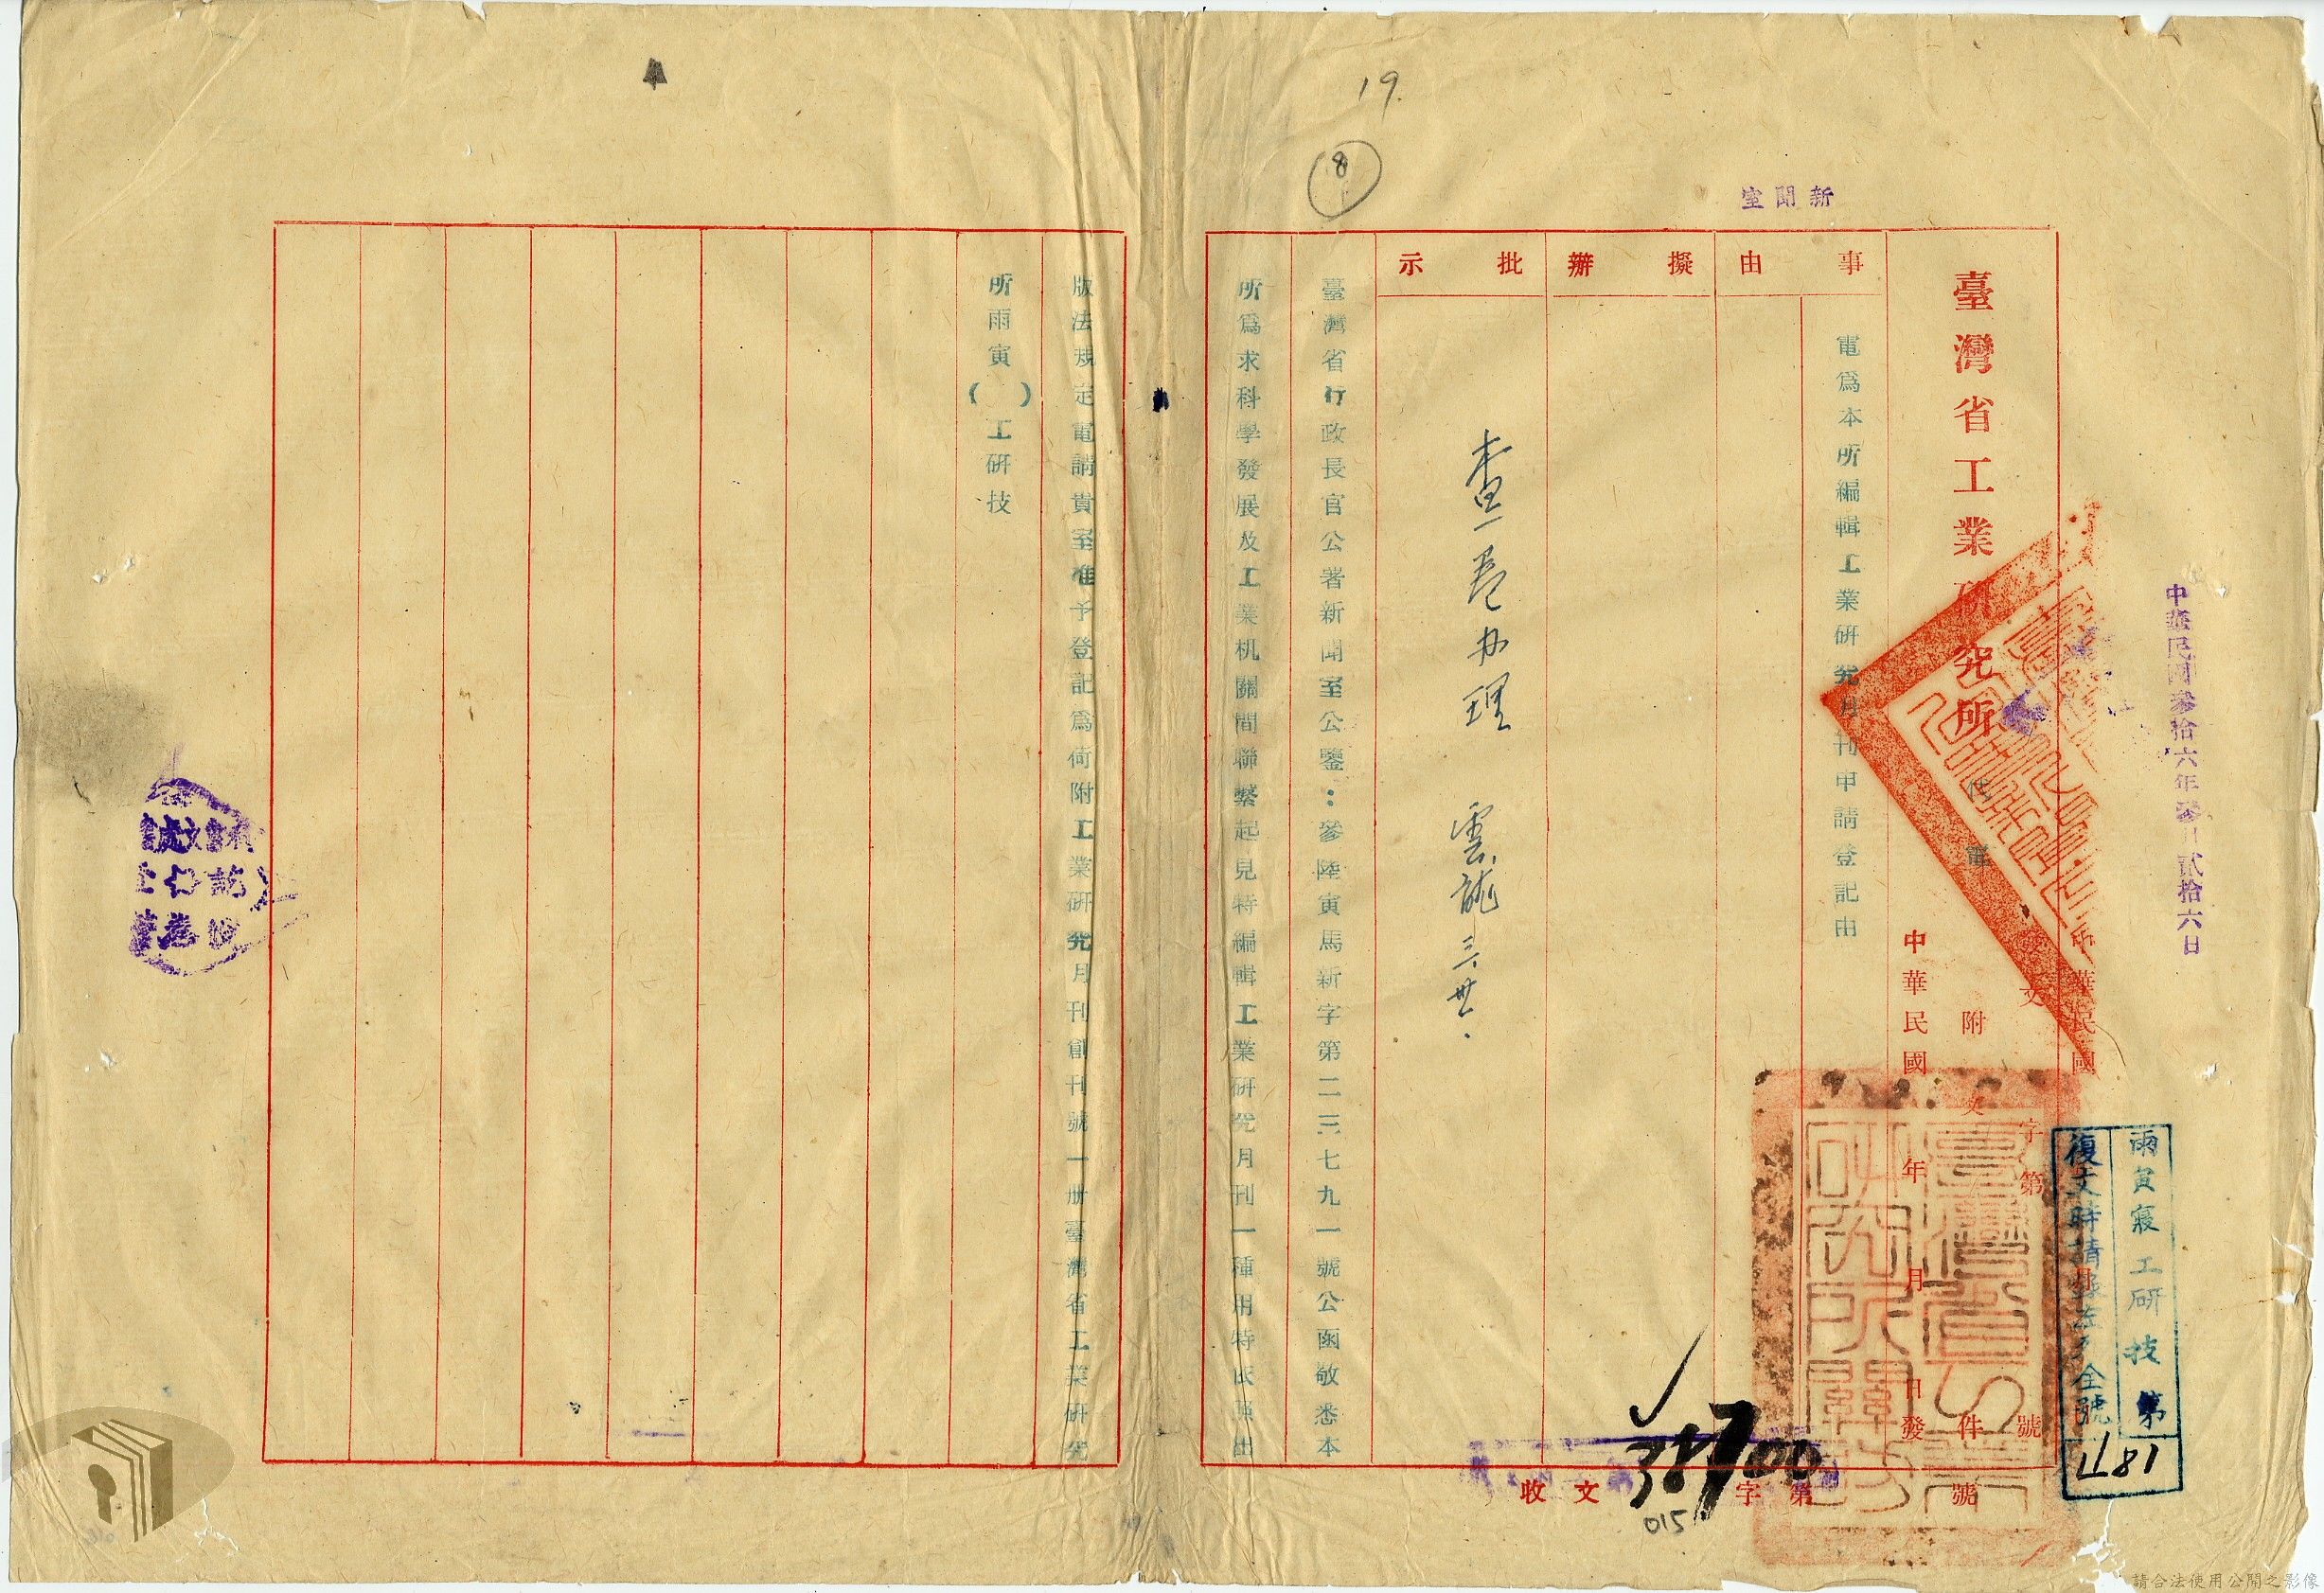 19.
8
新聞室
中華民國參拾六年參月貳拾六日
雨寅寢工研技第1181
復文時請錄註全號
臺灣省工業研究所
代電
附
件
字第
號
中華民國
年
月
日發
事由
電爲本所編輯工業研究月刊申請登記由
擬辦
批示
查卷办理
雲龍
三、廿六.
臺灣省行政長官公署新聞室公鑒:參陸寅馬新字第二三七九一號公函敬悉本
所爲求科學發展及工業机關間聯繫起見特編輯工業研究月刊一種用特依照出
版法規定電請貴室准予登記爲荷附工業研究月刊創刊號一册臺灣省工業研究
所雨寅( )工研技
收文
字第
號
38700
015
臺灣省工業研究所關防
請合法使用公開之影像